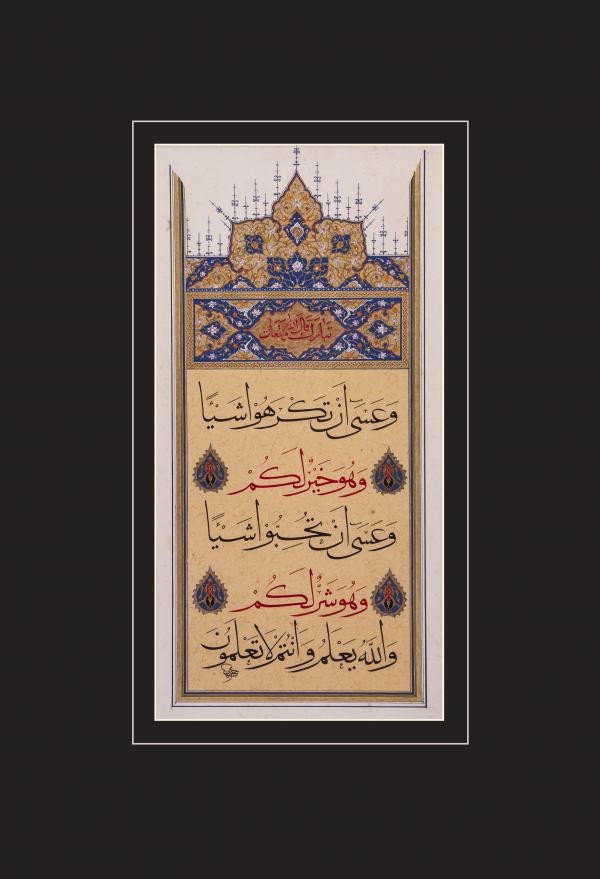 تبارك قال الله وتعالى
وَعَسَىٰ أَنْ تَكْرَهُوا شَيْئًا
وَهُوَ خَيْرٌ لَكُمْ
وَعَسَىٰ أَنْ تُحِبُّوا شَيْئًا
وَهُوَ شَرٌّ لَكُمْ
وَاللّٰهُ يَعْلَمُ وَأَنْتُمْ لَا تَعْلَمُونَ